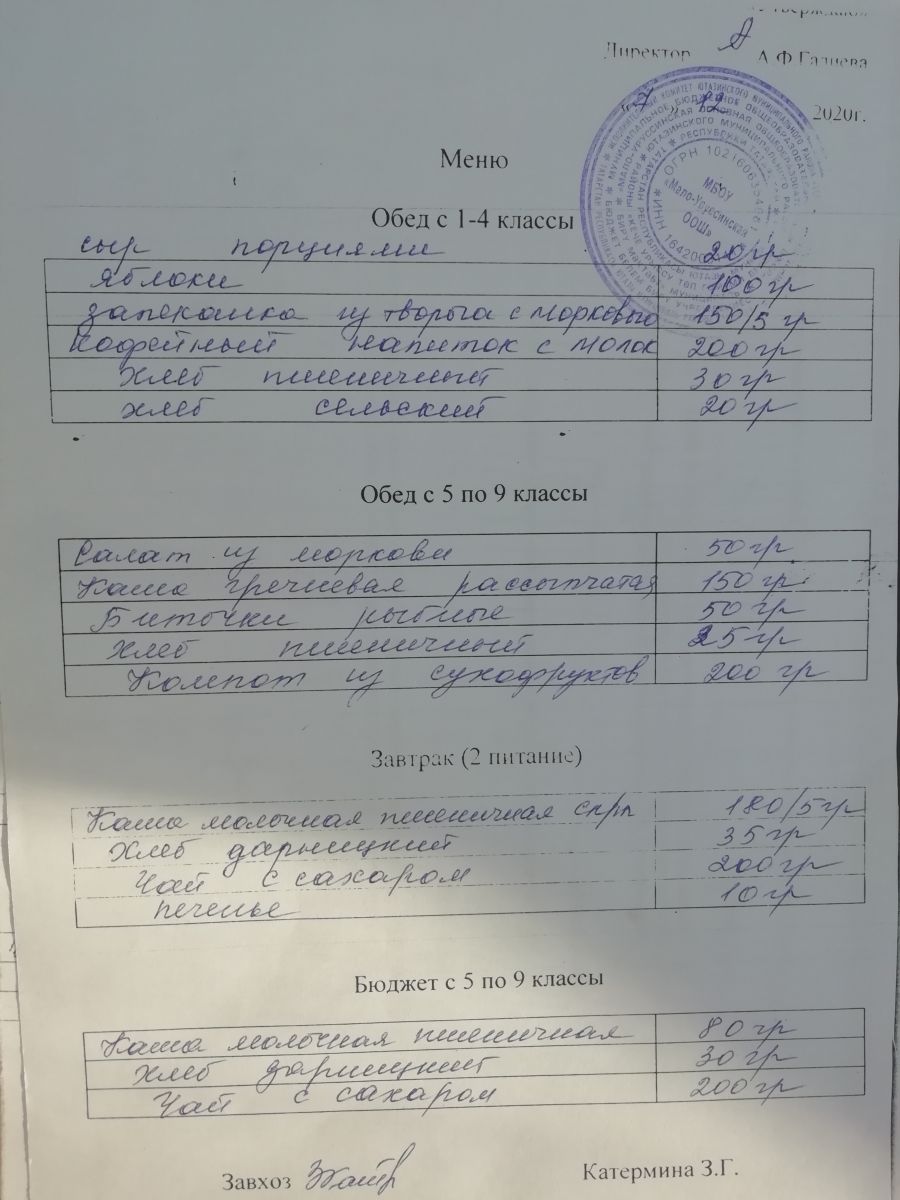 Директор А.Ф.Галиева
"7" 12 2020г.
Меню
МБОУ
«Мало-Уруссинская
ООШ»
Обед с 1-4 классы
сыр порциями 20 гр
яблоки 100 гр
запеканка из творога с морковью 150/5 гр
Кофейный напиток с молок 200 гр
хлеб пшеничный 30 гр
хлеб сельский 20 гр
Обед с 5 по 9 классы
Салат из моркови 50 гр
Каша гречневая рассыпчатая 150 гр
Биточки рыбные 50 гр
хлеб пшеничный 25 гр
Компот из сухофруктов 200 гр
Завтрак (2 питание)
Каша молочная пшеничная 180/5 гр
хлеб дарницкий 35 гр
Чай с сахаром 200 гр
печенье 10 гр
Бюджет с 5 по 9 классы
Каша молочная пшеничная 80 гр
хлеб дарницкий 30 гр
Чай с сахаром 200 гр
Завхоз Катермина З.Г.